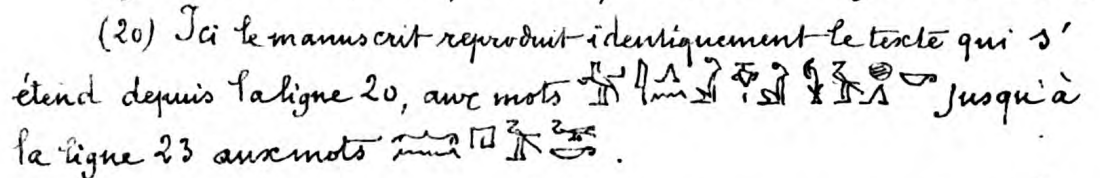 (20) Ici le manuscrit reproduit identiquement le texte qui s'
étend depuis la ligne 20, aux mots jusqu'à
la ligne 23 aux mots .